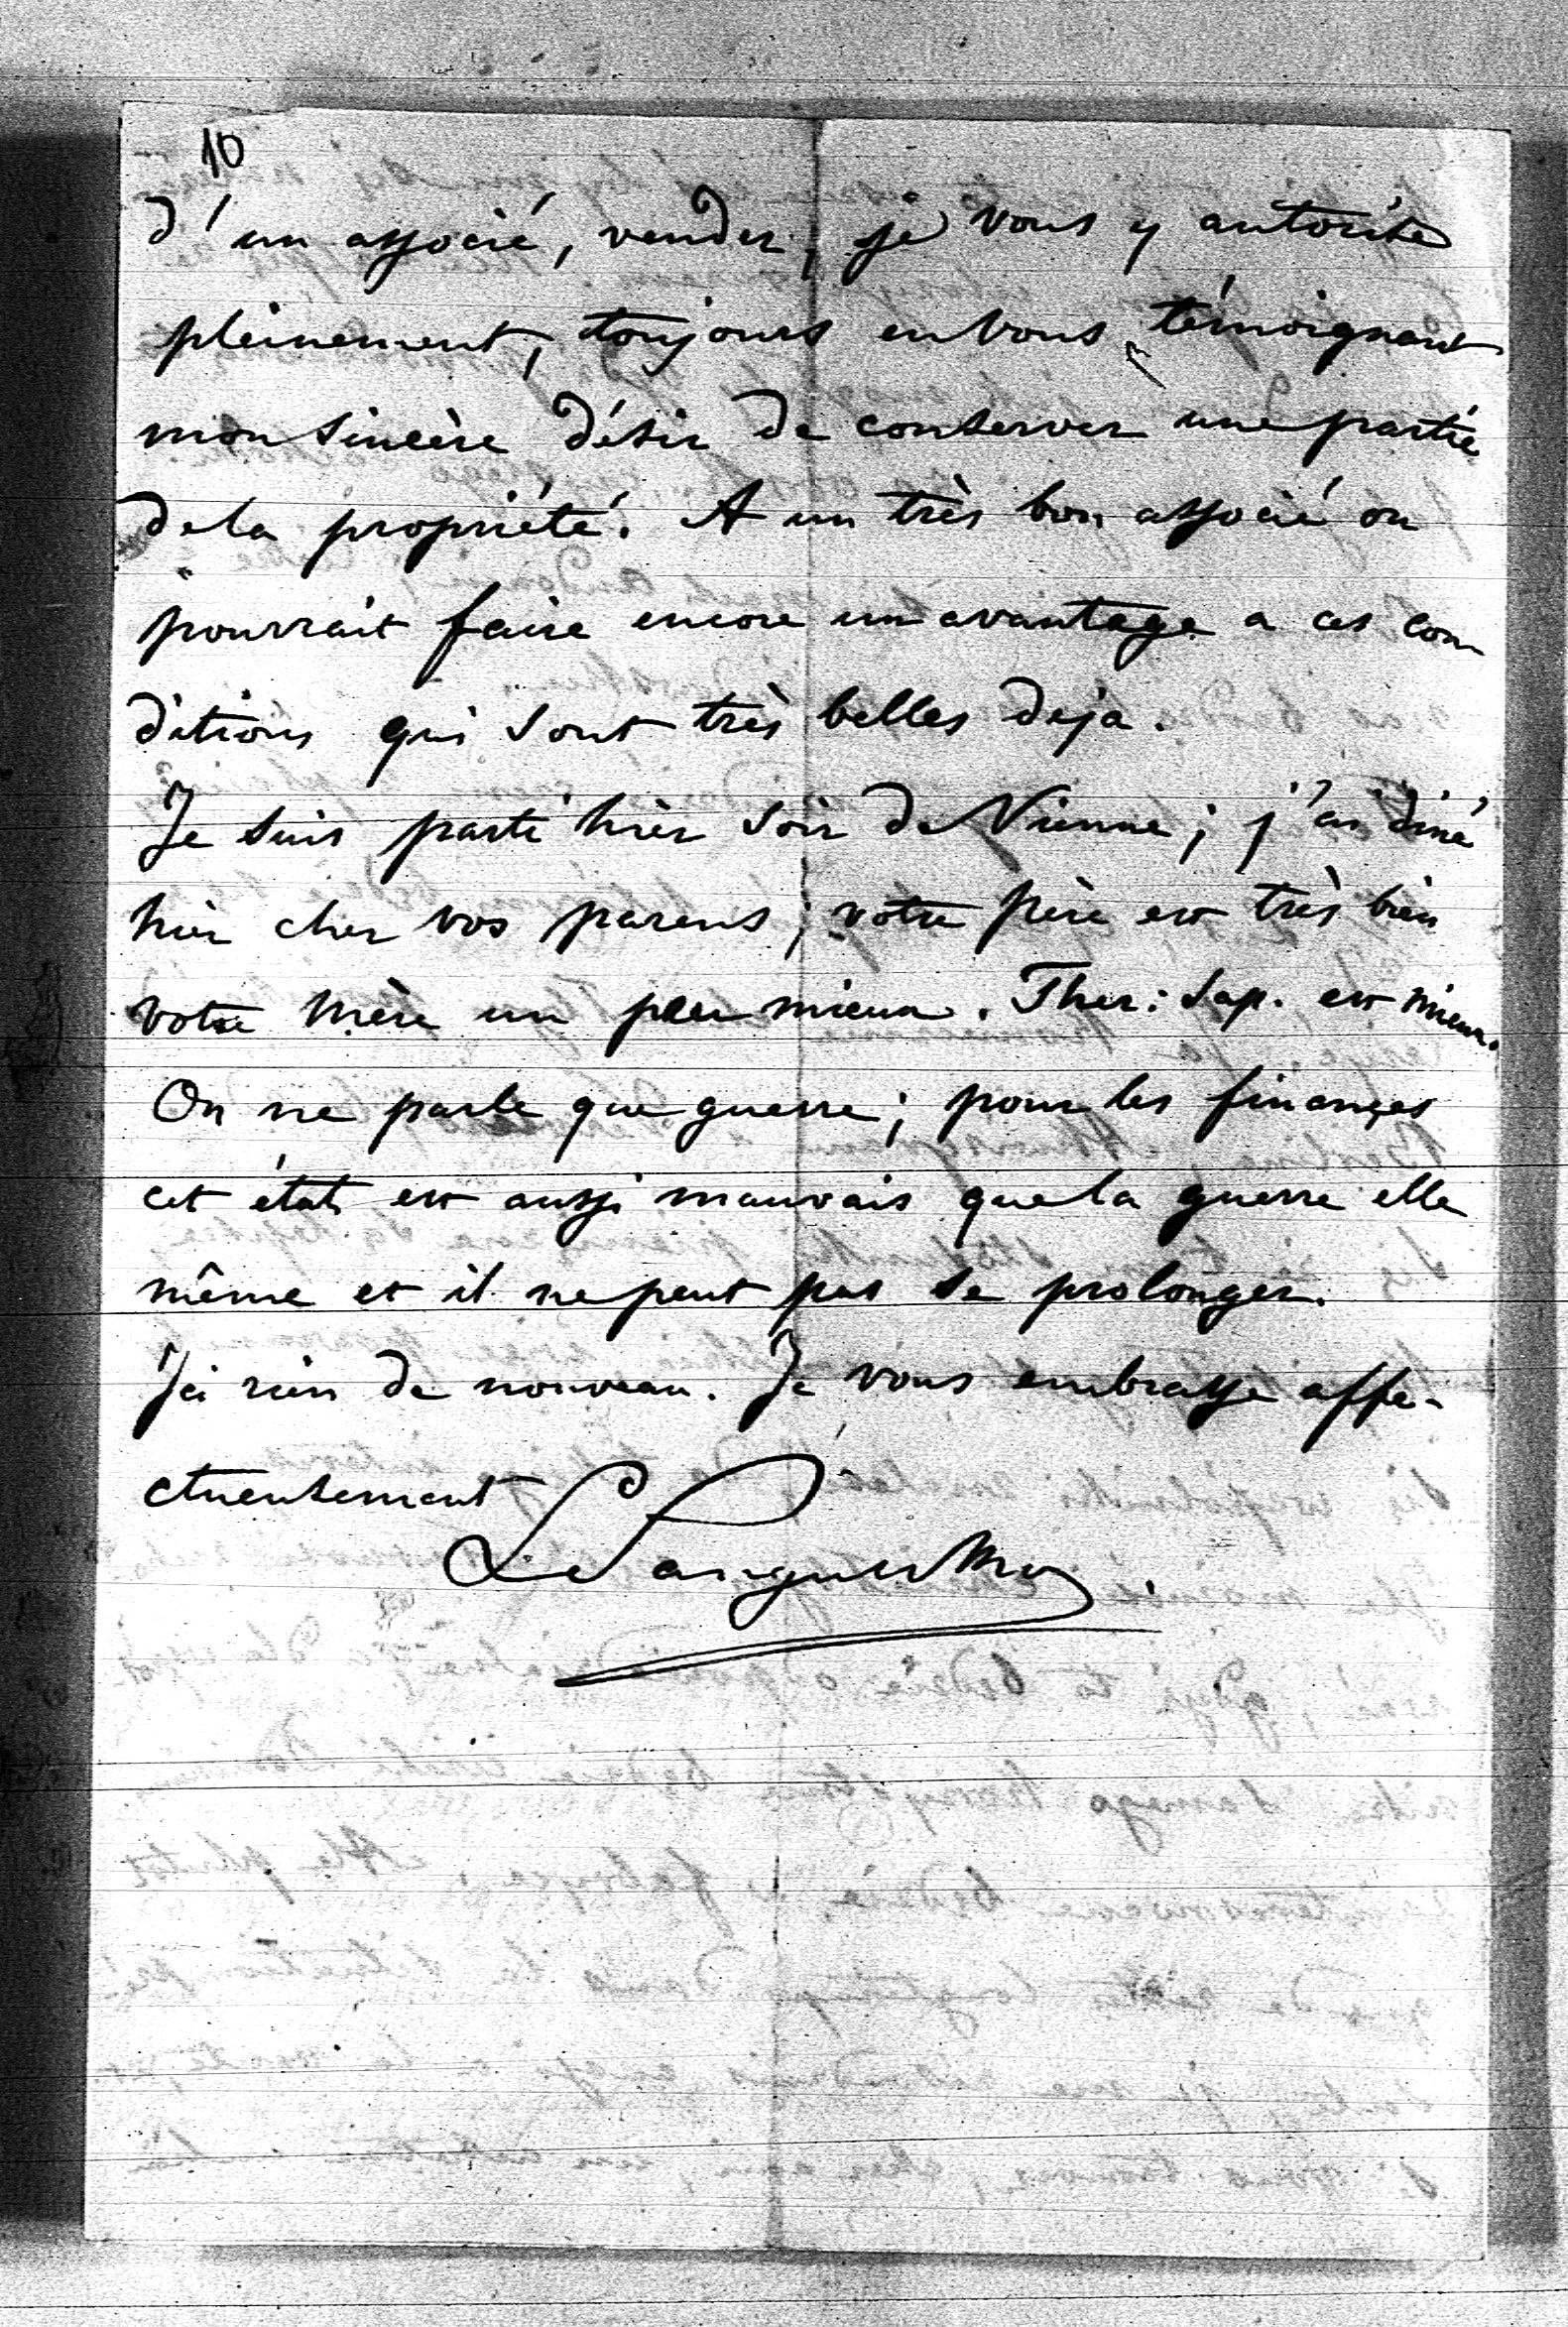 10
d'un associé, vendez, je vous y autorise
pleinement, toujours en vous témoignant
mon sincère désir de conserver une partie
de la propriété. A un très bon associé on
pourrait faire encore un avantage a ces con
ditions qui sont très belles deja.
Je suis parti hièr soir de Vienne; j'ai diné
hier chez vos parens; votre père est très bien
votre mère un peu mieux. Ther: Sap. est mieux.
On ne parle que guerre; pour les finançes
cet état est aussi mauvais que la guerre elle
même et il ne peut pas se prolonger.
Ici rien de nouveau. Je vous embrasse affe-
ctueusement